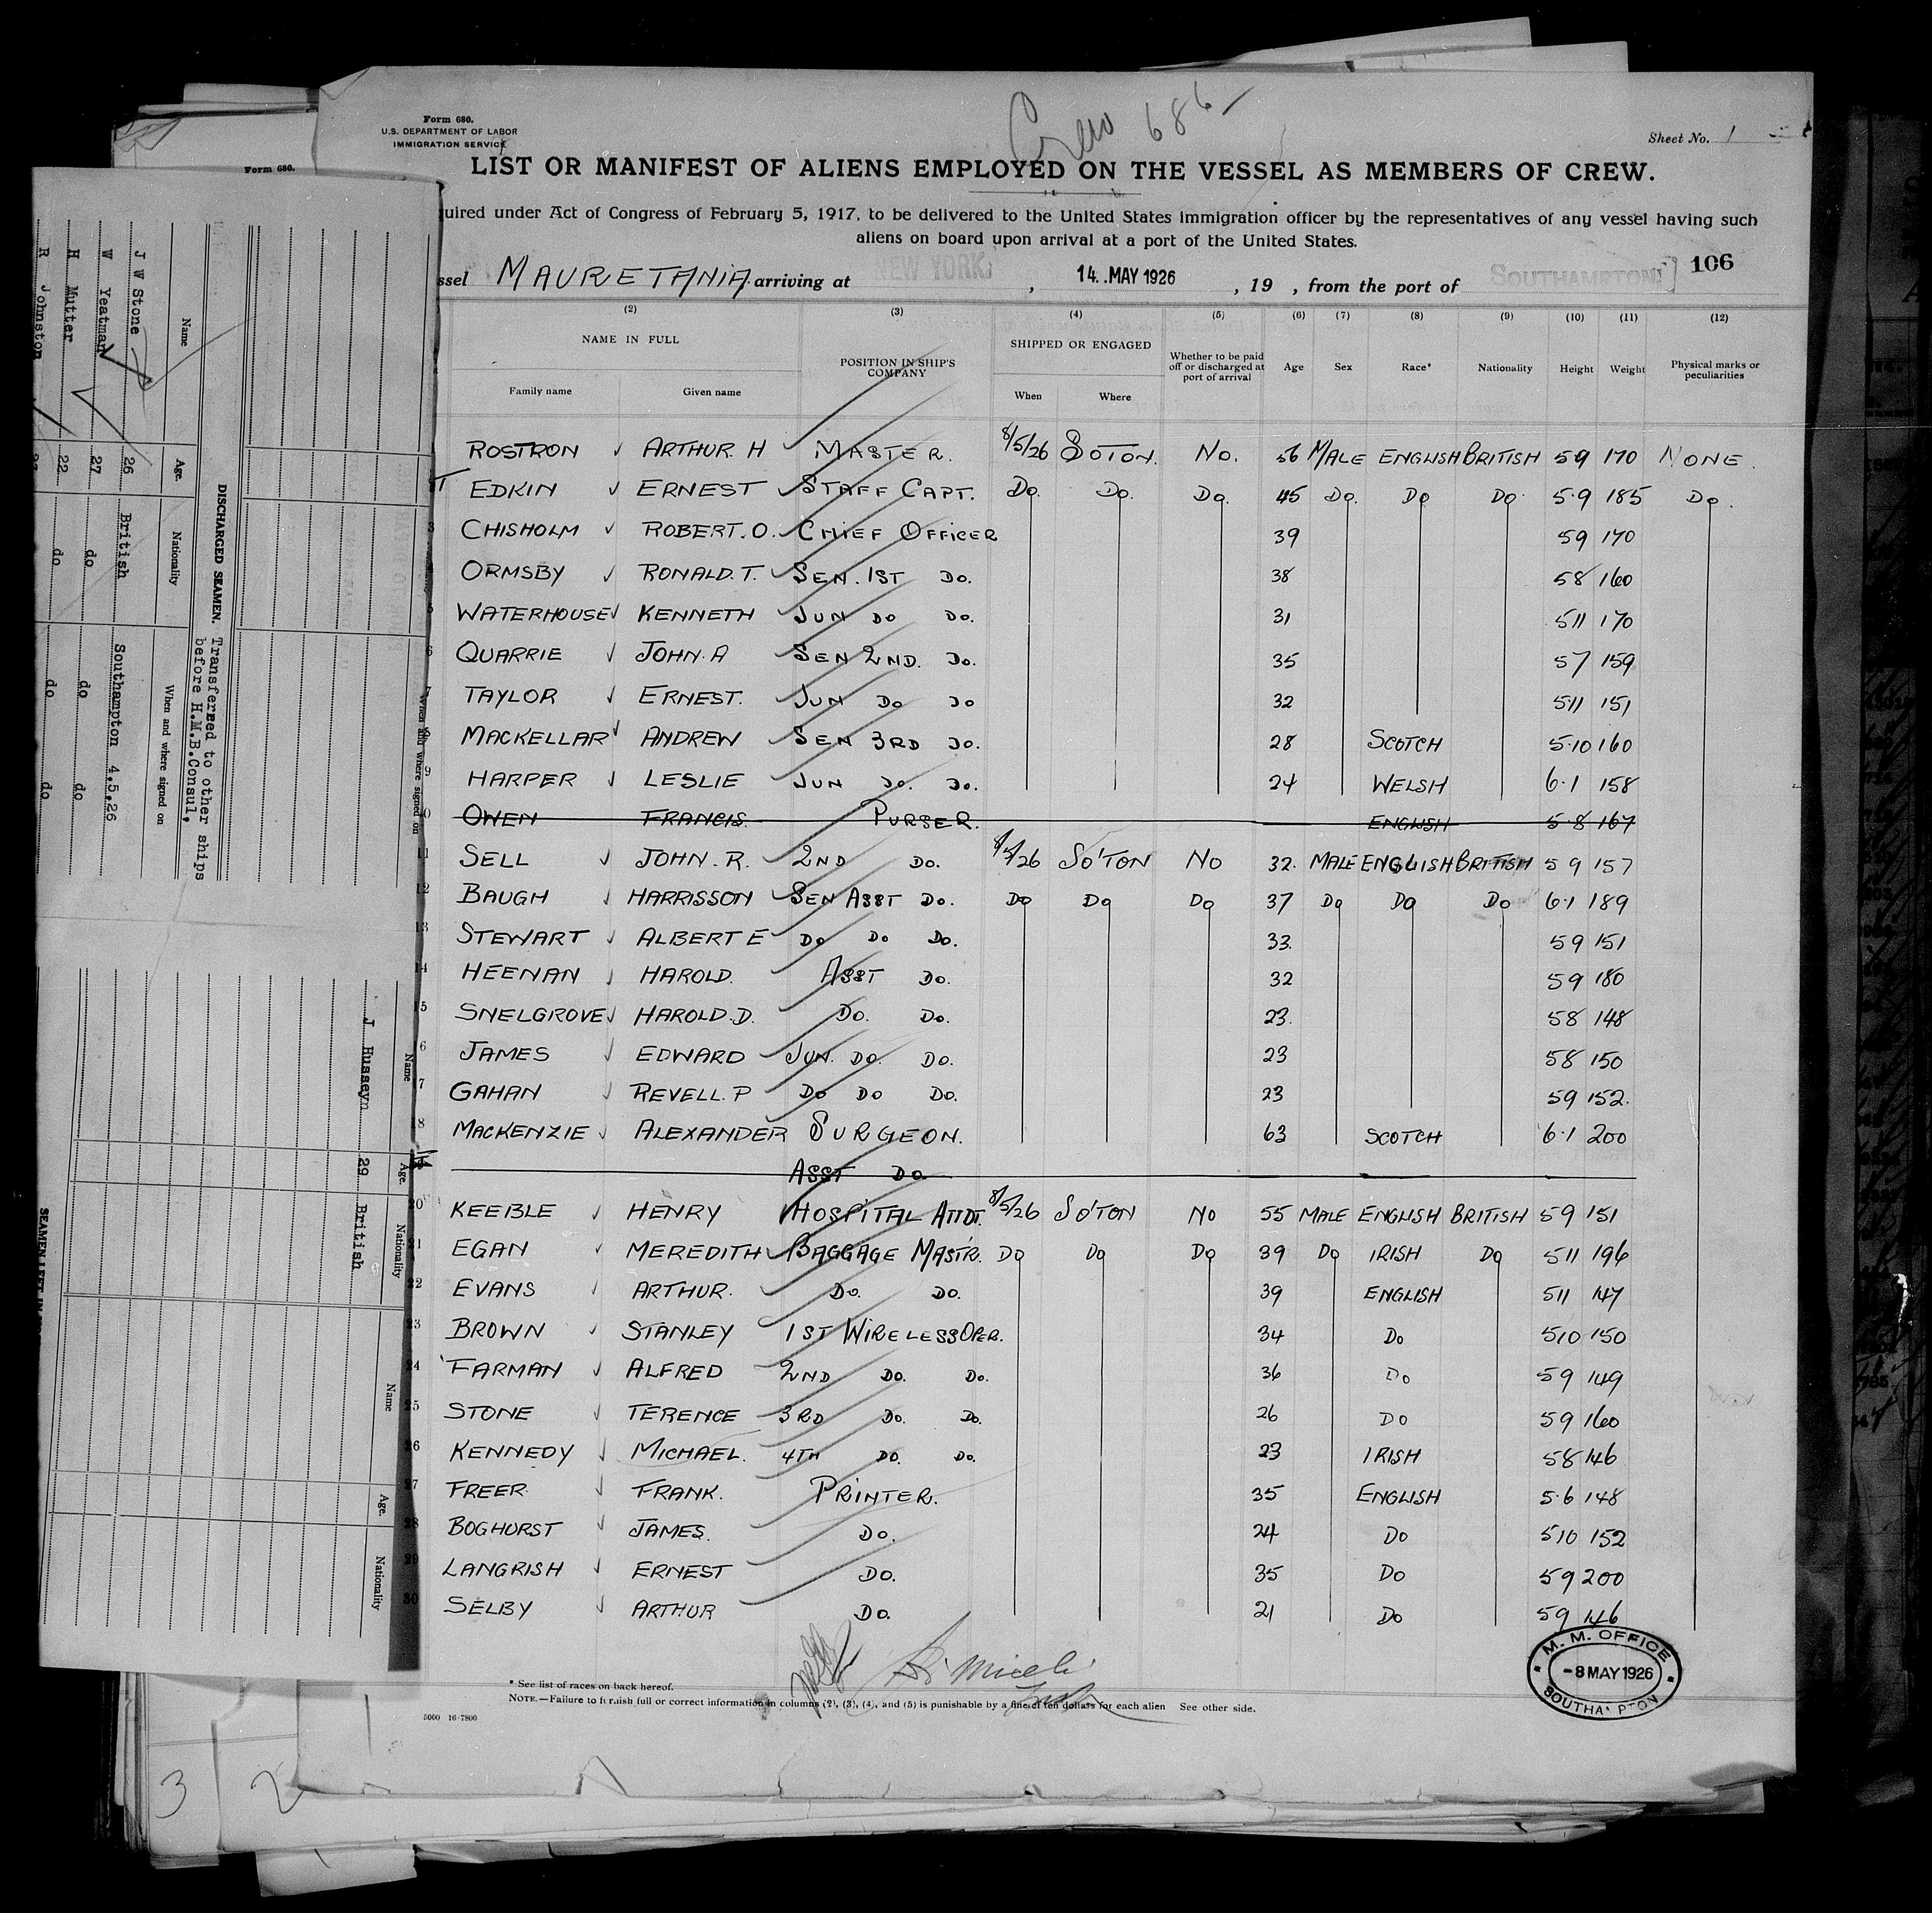 Crew 686
Form 680.
U.S. DEPARTMENT OF LABOR
IMMIGRATION SERVICE
Sheet No. 1
LIST OR MANIFEST OF ALIENS EMPLOYED ON THE VESSEL AS MEMBERS OF CREW.
quired under Act of Congress of February 5, 1917, to be delivered to the United States immigration officer by the representatives of any vessel having such
aliens on board upon arrival at a port of the United States.
ssel MAURETANIA arriving at NEW YORK, 14. MAY 1926, 19 , from the port of SOUTHAMPTON 106
(2) (3) (4) (5) (6) (7) (8) (9) (10) (11) (12)
NAME IN FULL POSITION IN SHIP'S COMPANY SHIPPED OR ENGAGED Whether to be paid off or discharged at port of arrival Age Sex Race* Nationality Height Weight Physical marks or peculiarities
Family name Given name When Where
ROSTRON ARTHUR H MASTER. 8/5/26 SOTON. NO. 56 MALE ENGLISH BRITISH 59 170 NONE.
EDKIN ERNEST STAFF CAPT. DO. DO. DO. 45 DO. DO DO. 5.9 185 DO.
3 CHISHOLM ROBERT. O. CHIEF OFFICER 39 59 170
ORMSBY RONALD. T. SEN. 1ST DO. 38 58 160
5 WATERHOUSE KENNETH JUN DO DO. 31 511 170
6 QUARRIE JOHN. A SEN 2ND. DO. 35 57 159
7 TAYLOR ERNEST. JUN DO DO 32 511 151
8 MACKELLAR ANDREW SEN 3RD DO. 28 SCOTCH 5.10 160
9 HARPER LESLIE JUN DO. DO. 24 WELSH 6.1 158
10 OWEN FRANCIS. PURSER. ENGLISH 5.8 167
11 SELL JOHN. R. 2ND DO. 8/5/26 SO'TON NO 32. MALE ENGLISH BRITISH 59 157
12 BAUGH HARRISSON SEN ASST DO. DO DO DO 37 DO DO DO 6.1 189
13 STEWART ALBERT E DO DO DO. 33. 59 151
14 HEENAN HAROLD. ASST DO. 32 59 180
15 SNELGROVE HAROLD. D. DO. DO. 23. 58 148
6 JAMES EDWARD JUN. DO. DO. 23 58 150
7 GAHAN REVELL. P DO DO DO. 23 59 152.
18 MACKENZIE ALEXANDER SURGEON. 63 SCOTCH 6.1 200
ASST DO
20 KEEBLE HENRY HOSPITAL ATTDT. 8/5/26 SO'TON NO 55 MALE ENGLISH BRITISH 59 151
21 EGAN MEREDITH BAGGAGE MASTR. DO DO DO 39 DO IRISH DO 511 196
22 EVANS ARTHUR. DO. DO. 39 ENGLISH 511 147
23 BROWN STANLEY 1ST WIRELESS OPER. 34 DO 510 150
24 FARMAN ALFRED 2ND DO. DO. 36 DO 59 149
25 STONE TERENCE 3RD DO. DO. 26 DO 59 160
26 KENNEDY MICHAEL. 4TH DO. DO. 23 IRISH 58 146
27 FREER FRANK. PRINTER. 35 ENGLISH 5.6 148
28 BOGHURST JAMES. DO. 24 DO 510 152
29 LANGRISH ERNEST DO. 35 DO 59 200
30 SELBY ARTHUR DO. 21 DO 59 146
M. M. OFFICE
-8 MAY 1926
SOUTHAMPTON
* See list of races on back hereof.
NOTE.—Failure to furnish full or correct information in columns (2), (3), (4), and (5) is punishable by a fine of ten dollars for each alien See other side.
5000 16-7800
Form 680.
DISCHARGED SEAMEN. Transferred to other ships
before H.M.B.Consul,
Name Age. Nationality When and where signed on
J W Stone 26 British Southampton 4.5.26
W Yeatman 27 do do do
H Mutter 22 do do do
R Johnston
When and where signed on
Name Age. Nationality
J Husseyn 29 British
Name Age. Nationality
SEAMEN LEFT IN
3
2